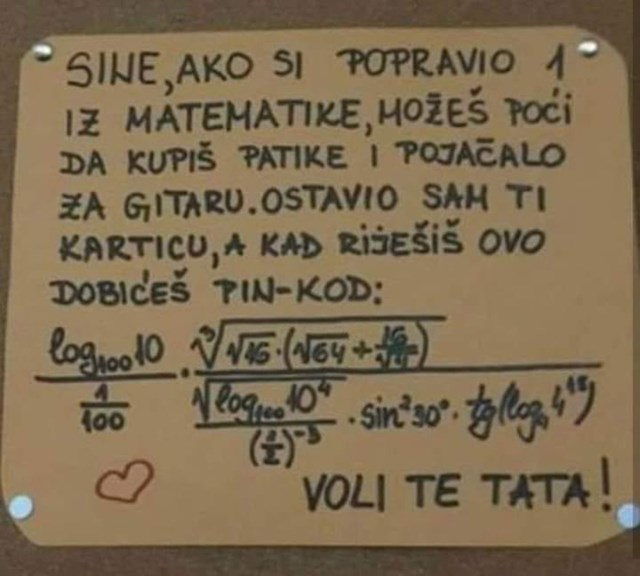 SINE, AKO SI POPRAVIO 1
IZ MATEMATIKE, MOŽEŠ POĆI
DA KUPIŠ PATIKE I POJAČALO
ZA GITARU. OSTAVIO SAM TI
KARTICU, A KAD RIJEŠIŠ OVO
DOBIĆEŠ PIN-KOD:
log₁₀₀10 · ³√(√16 · (√64 +
1/100 √log₁₀₀10⁴ / (1/2)⁻³ · sin²30° · tg(log₄
VOLI TE TATA!